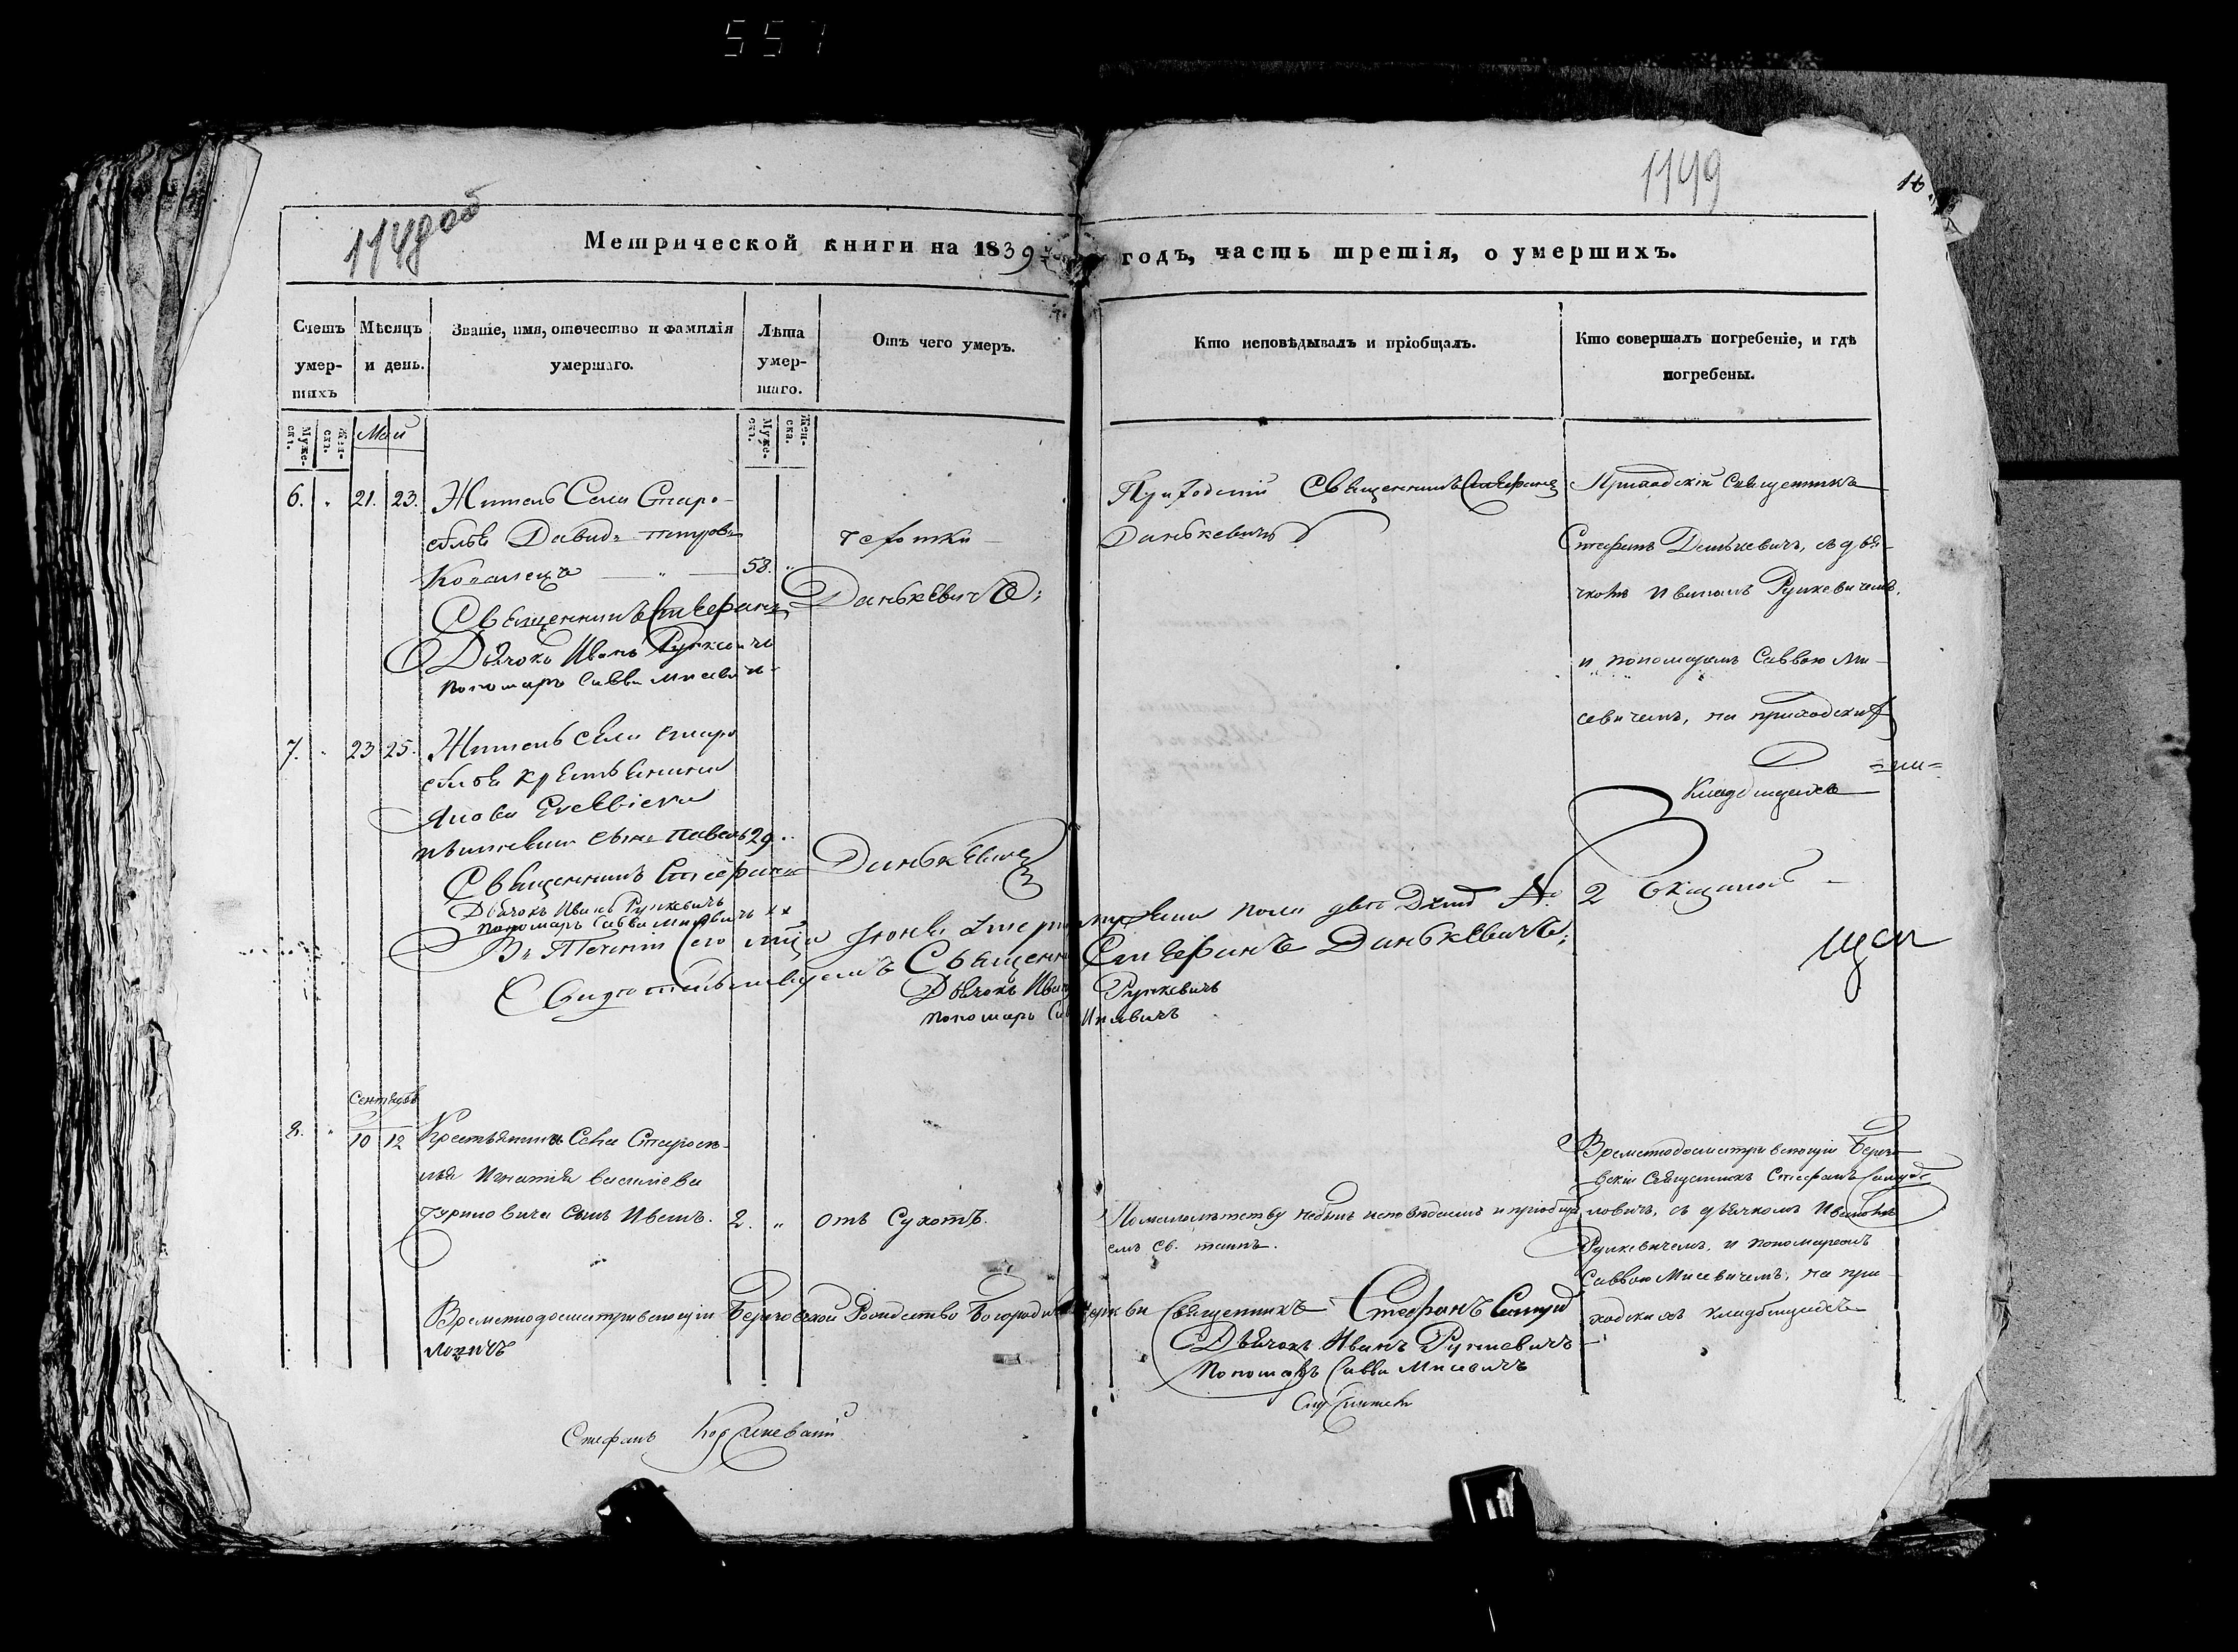 557
1148 об
1149
16.
Метрической книги на 1839 годъ, часть третія, о умершихъ.
Счетъ умер-шихъ
Мѣсяцъ и день.
Званіе, имя, отечество и фамилія умершаго.
Лѣта умер-шаго.
Отъ чего умеръ.
Кто исповѣдывалъ и пріобщалъ.
Кто совершалъ погребеніе, и гдѣ погребены.
Муже-ск.
Жен-ск.
Май
Муже-ск.
Жен-ска.
6. " 21. 23. Житель Села Старо-
сѣлья Давидъ Петровъ
Ковалецъ 58. "
Священникъ Стефанъ Данькевичъ;
Дьячокъ Иванъ Рункевичъ
Пономаръ Савва Мисевич
Приходскій Священникъ Стефанъ
Данькевичъ
Приходскій Священникъ
Стефанъ Данькевичъ, съ дья-
чкомъ Иваномъ Рункевичемъ,
и пономаремъ Саввою Ми-
севичемъ, на приходскихъ
Кладбищахъ
7. " 23 25. Житель Села Старо
сѣлья
сынъ Павелъ 29.
Священникъ Стефанъ Данькевичъ
Дьячокъ Иванъ Рункевичъ
Пономаръ Савва Мисевичъ
Въ Теченіи сего мца Іюня умер мужеска пола два № 2
Свидетельствуемъ Священникъ Стефанъ Данькевичъ;
Дьячокъ Иванъ Рункевичъ
Пономаръ Савва Мисевичъ
Сентябрь
8. " 10 12 Крестьянина Села Старосѣ-
лья Игнатія Василіева
Гуриновича Сынъ Иванъ. 2. " Отъ Сухотъ.
По малолѣтству небылъ исповѣданъ и пріобще
енъ св. таинъ.
Временнодосматривающій
Священникъ Стефанъ Самуй
ловичъ, съ дьячкомъ Иваномъ
Рункевичемъ, и пономаремъ
Саввою Мисевичемъ, на при-
ходскихъ кладбищахъ
Временнодосматривающій Рождество Богородичной Церкви Священникъ Стефанъ Самуй
ловичъ
Дьячокъ Иванъ Рункевичъ
Пономаръ Савва Мисевичъ
Стефанъ